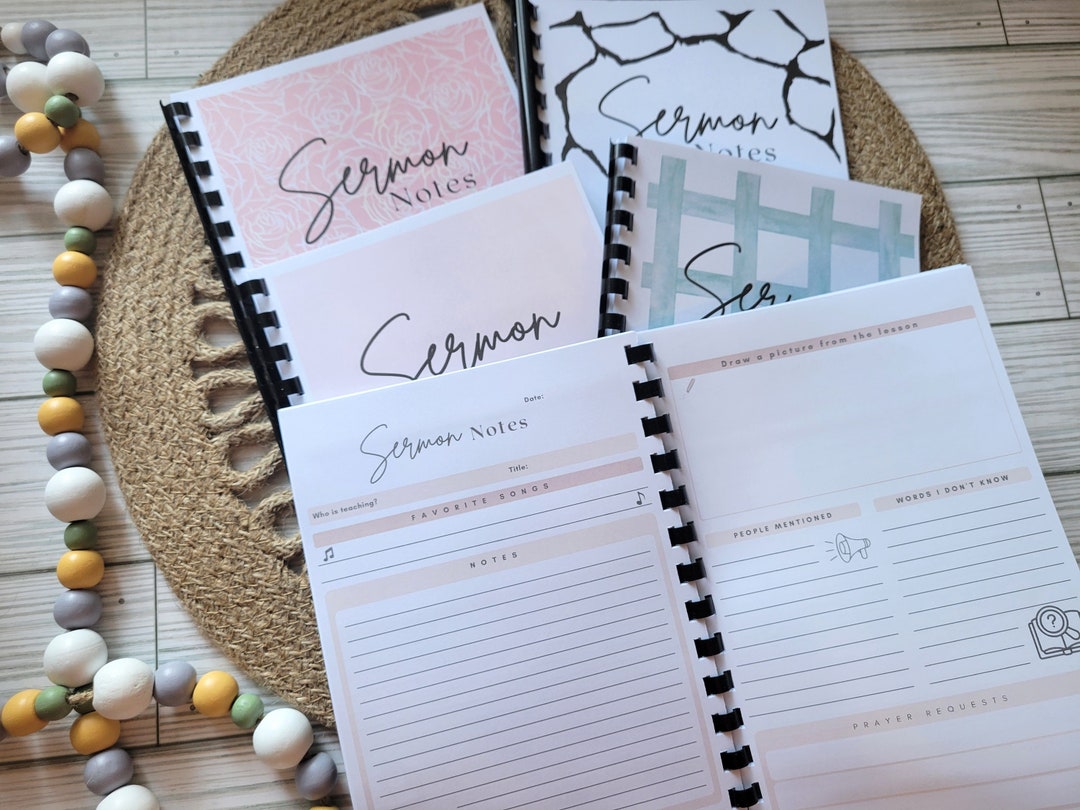 Sermon
Notes
Sermon
Notes
Sermon
Ser
Date:
Sermon Notes
Who is teaching?
Title:
FAVORITE SONGS
NOTES
Draw a picture from the lesson
PEOPLE MENTIONED
WORDS I DON'T KNOW
?
PRAYER REQUESTS